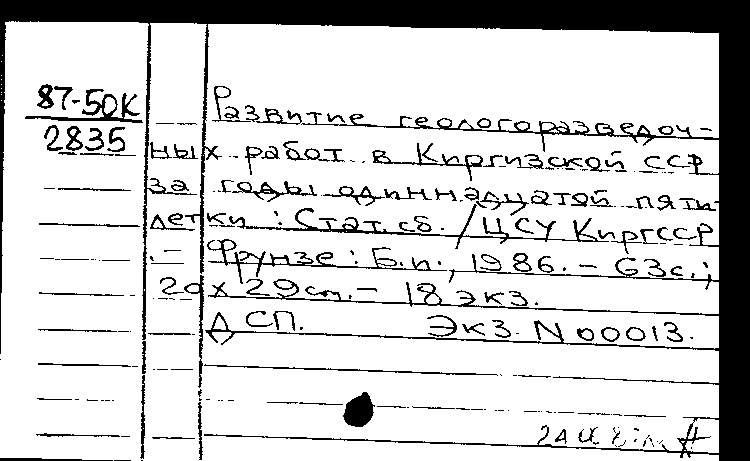 87-50К
2835
Развитие геологоразведоч-
ных работ в Киргизской ССР
за годы одиннадцатой пяти
летки : Стат. сб. / ЦСУ КиргССР
.– Фрунзе : Б.и., 1986. – 63с.;
20 х 29см. – 18 экз.
ДСП. Экз. N 00013.